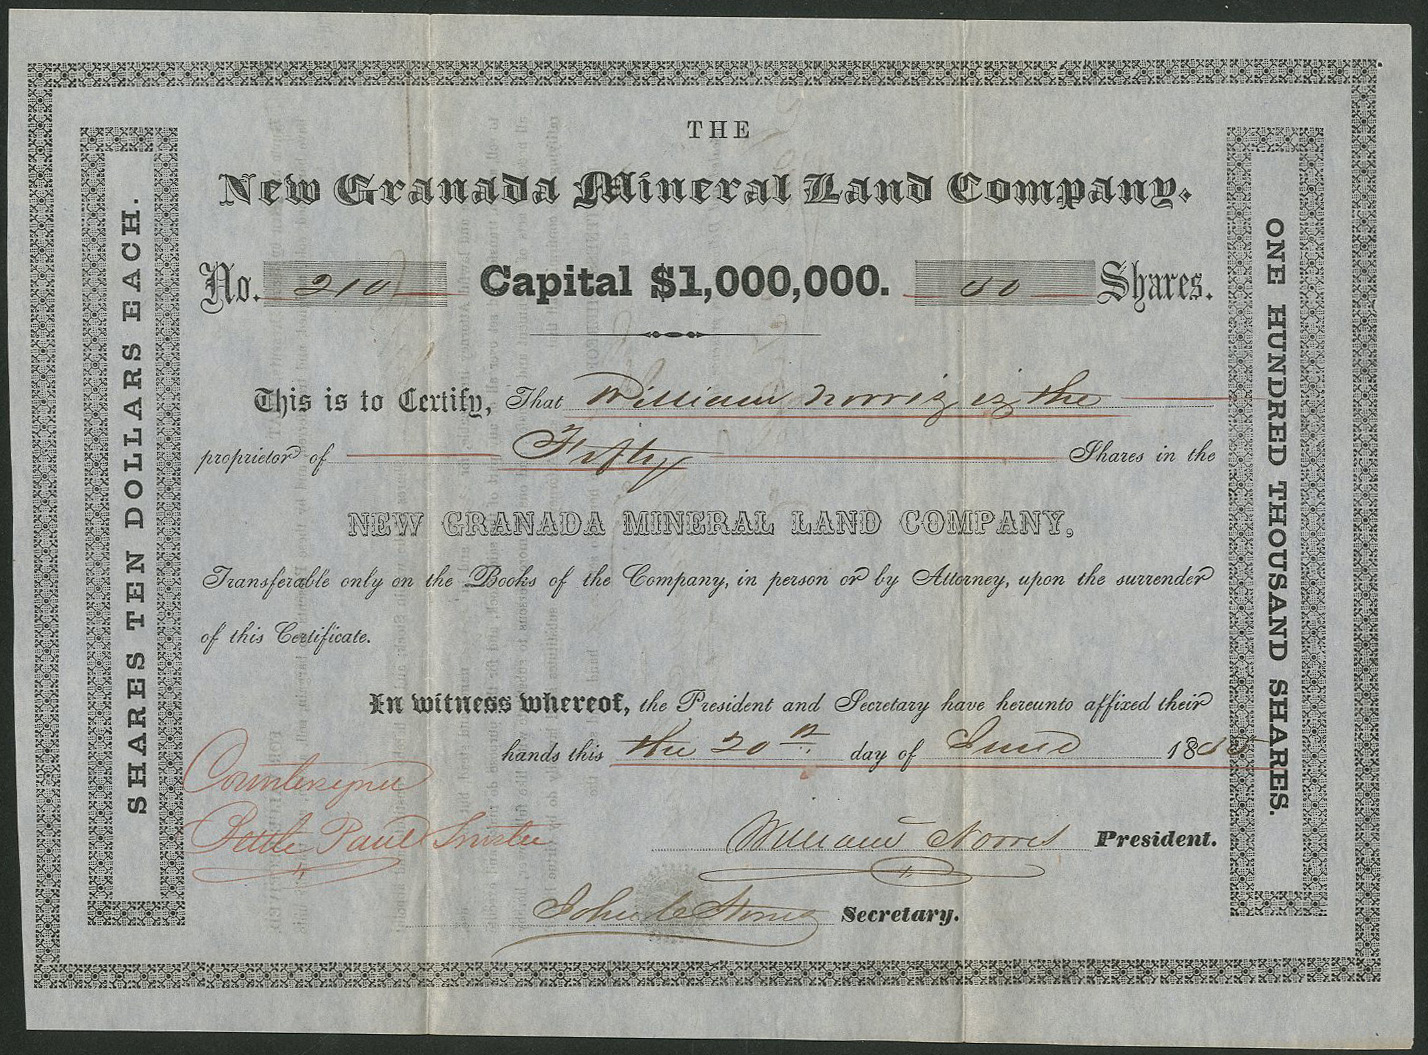 THE
New Granada Mineral Land Company.
No. 210 Capital $1,000,000. 50 Shares.
This is to Certify, That William Norris is the
proprietor of Fifty Shares in the
NEW GRANADA MINERAL LAND COMPANY,
Transferable only on the Books of the Company, in person or by Attorney, upon the surrender
of this Certificate.
In witness whereof, the President and Secretary have hereunto affixed their
hands this the 20th day of June 1855
Countersigned
Paul Trustee
William Norris President.
John Secretary.
SHARES TEN DOLLARS EACH.
ONE HUNDRED THOUSAND SHARES.